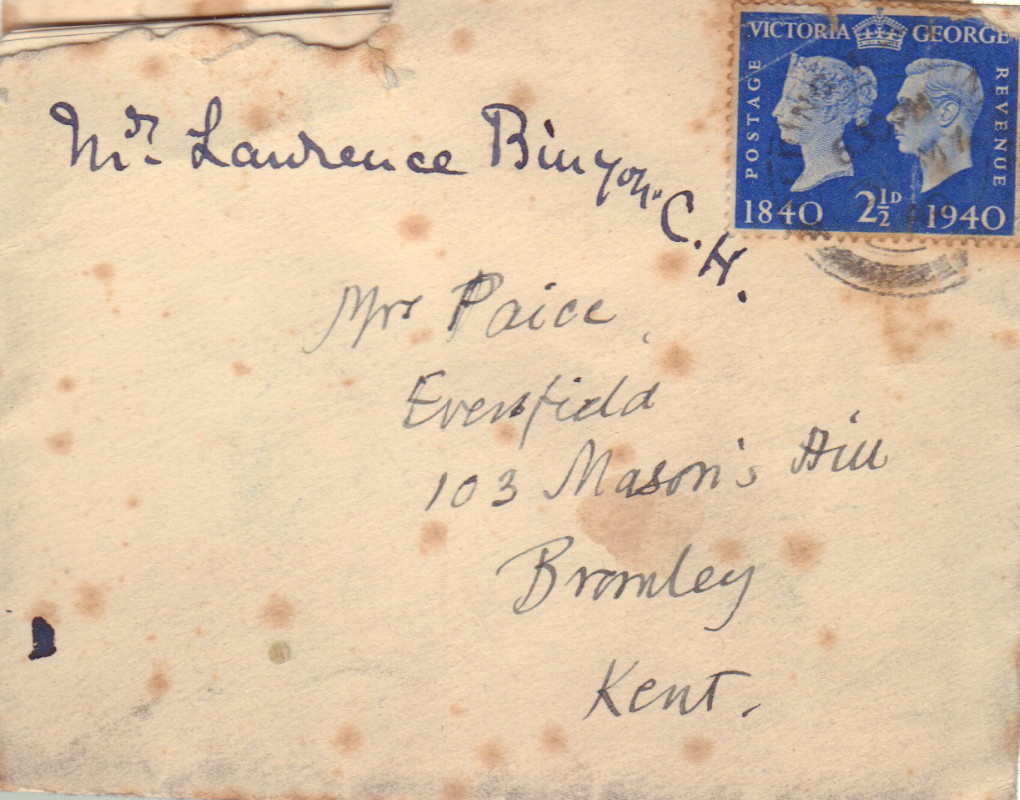 VICTORIA GEORGE
POSTAGE
REVENUE
1840 2½D 1940
Mr. Lawrence Binyon. C.H.
Mrs Paice
Evensfield
103 Mason's Hill
Bromley
Kent.